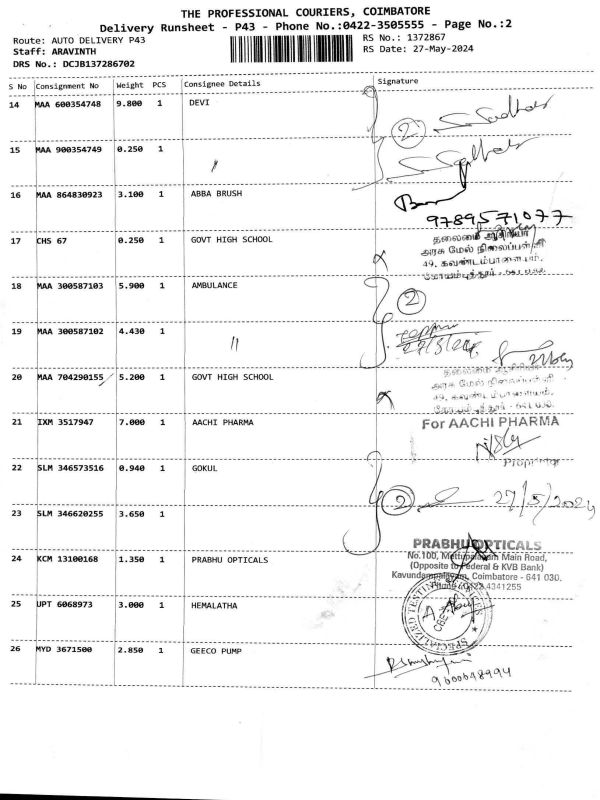 THE PROFESSIONAL COURIERS, COIMBATORE
Delivery Runsheet - P43 - Phone No.:0422-3505555 - Page No.:2
Route: AUTO DELIVERY P43
RS No.: 1372867
Staff: ARAVINTH
RS Date: 27-May-2024
DRS No.: DCJB137286702
S No Consignment No Weight PCS Consignee Details Signature
14 MAA 600354748 9.800 1 DEVI
2
15 MAA 900354749 0.250 1 〃
16 MAA 864830923 3.100 1 ABBA BRUSH
9789571077
17 CHS 67 0.250 1 GOVT HIGH SCHOOL
தலைமை ஆசிரியர்
அரசு மேல் நிலைப்பள்ளி
49, கவுண்டம்பாளையம்,
கோயம்புத்தூர் - 641 030.
18 MAA 300587103 5.900 1 AMBULANCE
2
19 MAA 300587102 4.430 1 〃
27/5/24
20 MAA 704290155 5.200 1 GOVT HIGH SCHOOL
தலைமை ஆசிரியர்
அரசு மேல் நிலைப்பள்ளி
49, கவுண்டம்பாளையம்,
கோயம்புத்தூர் - 641 030.
21 IXM 3517947 7.000 1 AACHI PHARMA
For AACHI PHARMA
Proprietor
22 SLM 346573516 0.940 1 GOKUL
2 27/5/2024
23 SLM 346620255 3.650 1
24 KCM 13100168 1.350 1 PRABHU OPTICALS
PRABHU OPTICALS
No.100, Mettupalayam Main Road,
(Opposite to Federal & KVB Bank)
Kavundampalayam, Coimbatore - 641 030.
25 UPT 6068973 3.000 1 HEMALATHA
SPECIALIZED TESTING SERVICES
CBE
26 MYD 3671500 2.850 1 GEECO PUMP
9600648994